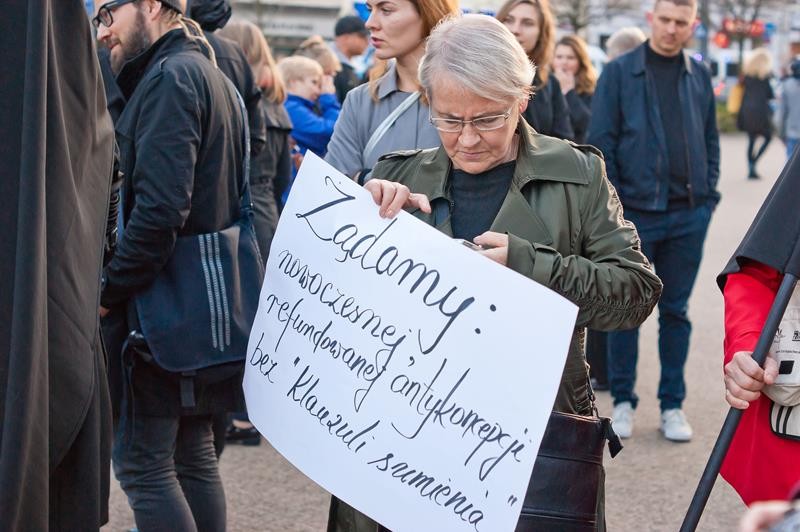 Żądamy:
nowoczesnej,
refundowanej antykoncepcji
bez "Klauzuli sumienia"